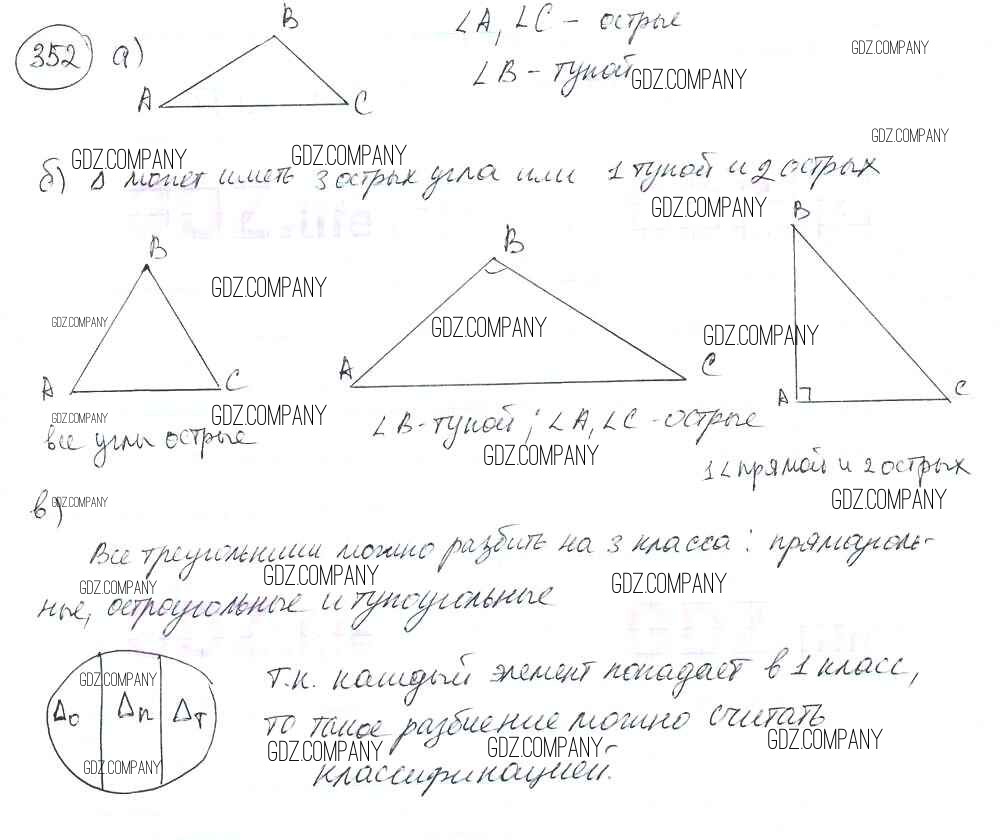 352 а) B ∠A, ∠C - острые
GDZ.COMPANY
∠B - тупой GDZ.COMPANY
A C
GDZ.COMPANY
GDZ.COMPANY GDZ.COMPANY
б) Δ может иметь 3 острых угла или 1 тупой и 2 острых
GDZ.COMPANY
B B B
GDZ.COMPANY
GDZ.COMPANY GDZ.COMPANY GDZ.COMPANY
A C A C A C
GDZ.COMPANY GDZ.COMPANY
все углы острые ∠B - тупой; ∠A, ∠C - острые
GDZ.COMPANY
1∠ прямой и 2 острых
GDZ.COMPANY GDZ.COMPANY
в)
Все треугольники можно разбить на 3 класса: прямауголь-
GDZ.COMPANY GDZ.COMPANY GDZ.COMPANY
ные, остроугольные и тупоугольные
Т.к. каждый элемент попадает в 1 класс,
GDZ.COMPANY
Δо Δп Δт то такое разбиение можно считать
GDZ.COMPANY GDZ.COMPANY GDZ.COMPANY
GDZ.COMPANY классификацией.